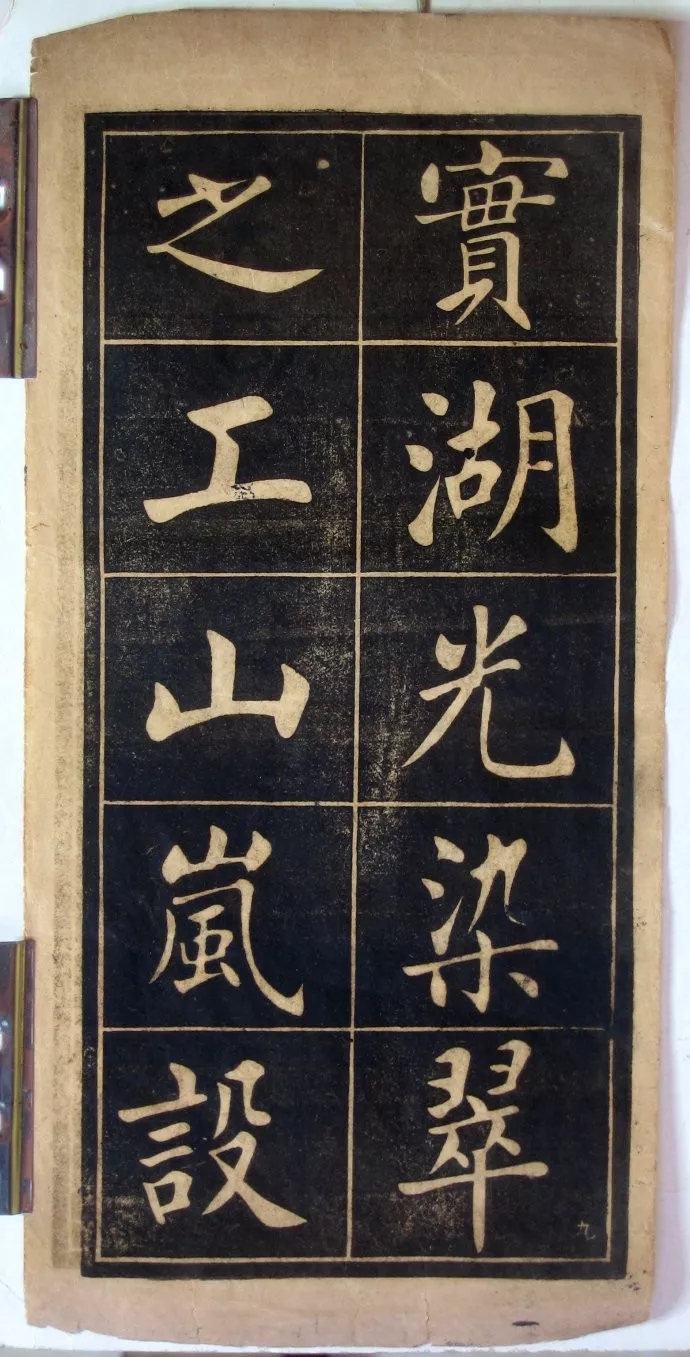 實湖光染翠
之工山嵐設
九